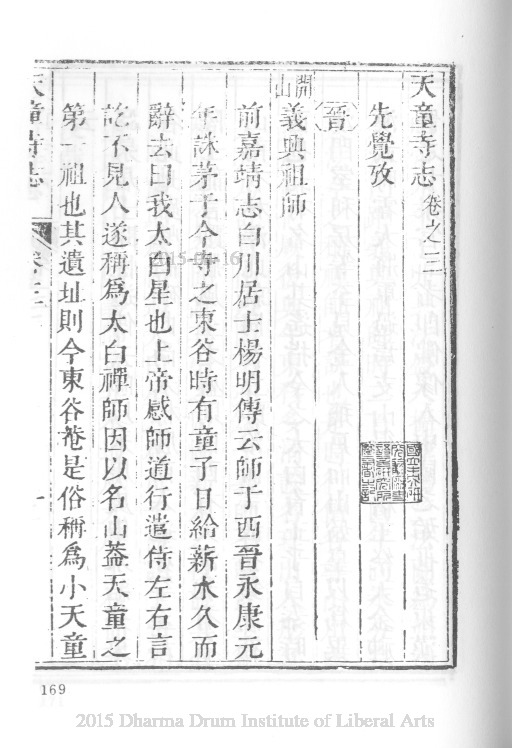 天童寺志卷之三
先覺攷
晉
開山義興祖師
前嘉靖志白川居士楊明傳云師于西晉永康元
年誅茅于今寺之東谷時有童子日給薪水久而
辭去曰我太白星也上帝感師道行遣侍左右言
訖不見人遂稱爲太白禪師因以名山葢天童之
第一祖也其遺址則今東谷菴是俗稱爲小天童
天童寺志
卷三
一
169
2015 Dharma Drum Institute of Liberal Arts